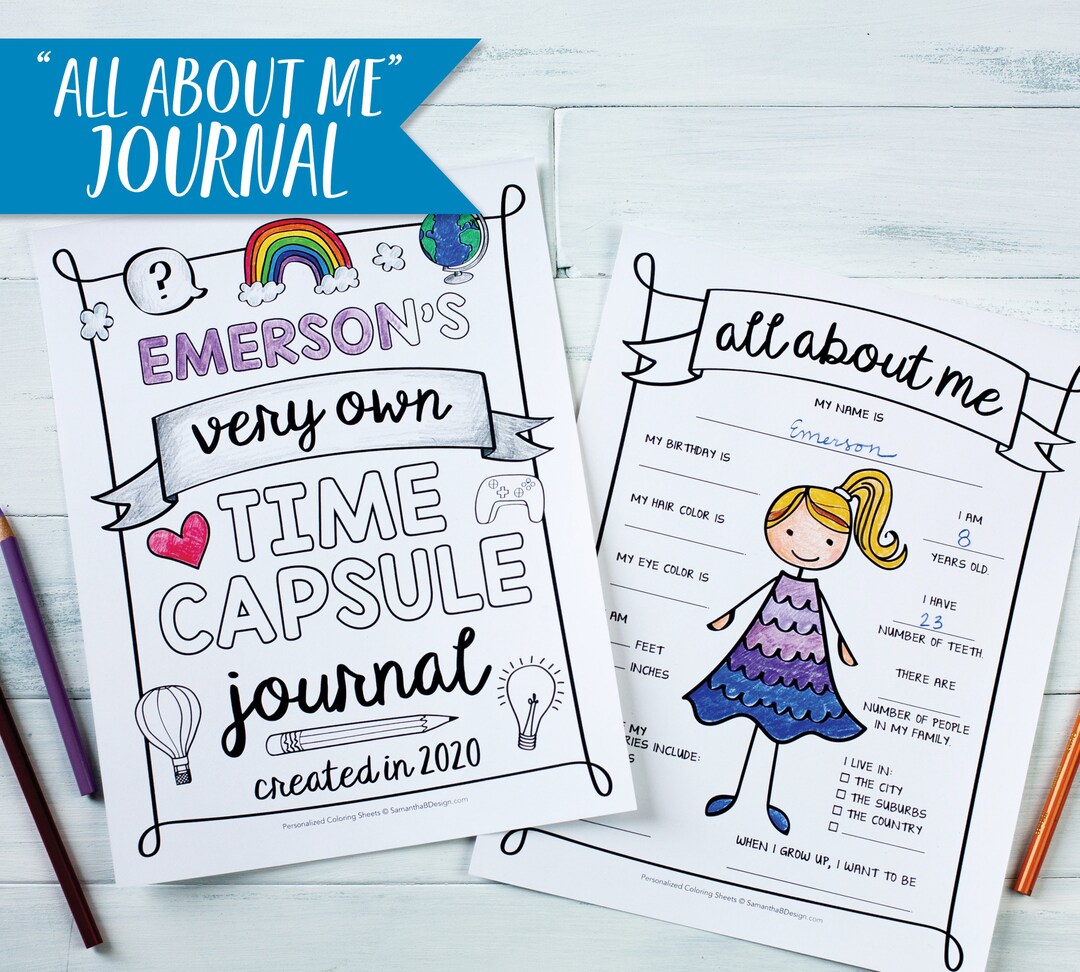 “ALL ABOUT ME”
JOURNAL
?
EMERSON'S
very own
TIME
CAPSULE
journal
created in 2020
Personalized Coloring Sheets © SamanthaBDesign.com
all about me
MY NAME IS
Emerson
MY BIRTHDAY IS
MY HAIR COLOR IS
MY EYE COLOR IS
AM
FEET
INCHES
MY
INCLUDE:
I AM
8
YEARS OLD.
I HAVE
23
NUMBER OF TEETH.
THERE ARE
NUMBER OF PEOPLE
IN MY FAMILY.
I LIVE IN:
THE CITY
THE SUBURBS
THE COUNTRY
WHEN I GROW UP, I WANT TO BE
Personalized Coloring Sheets © SamanthaBDesign.com